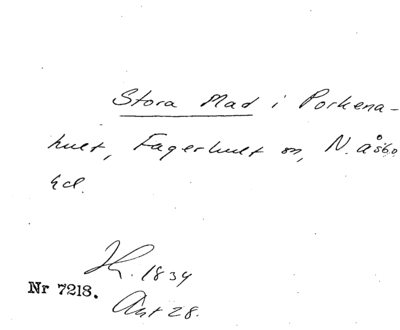 Stora Mad i Porkena-
hult, Fagerhult sn, N. Åsbo
hd.
Jh. 1834
Nr 7218.
Akt 28.